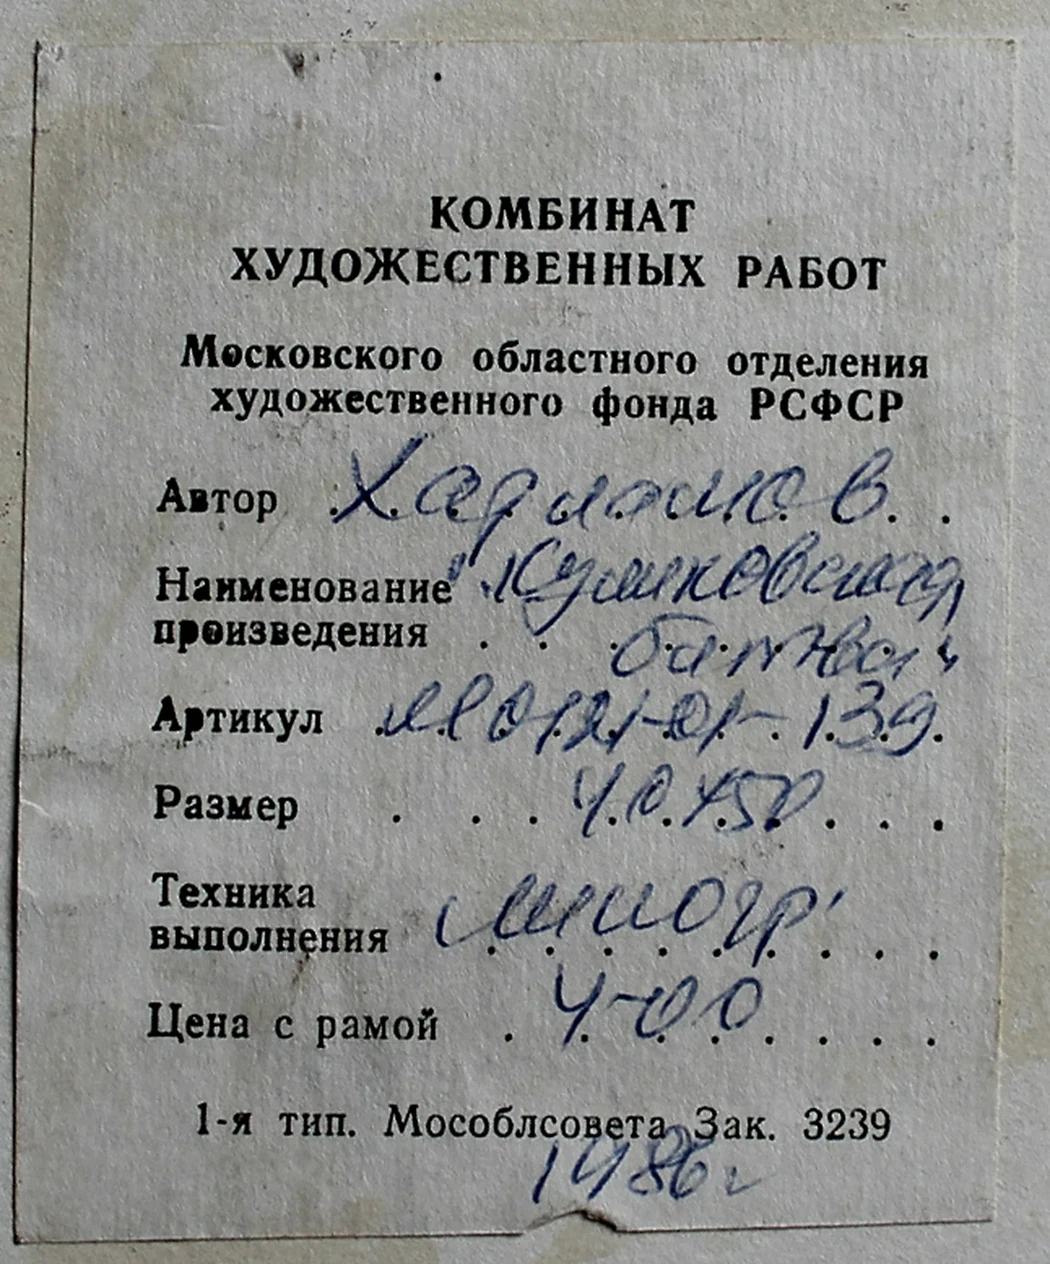 КОМБИНАТ
ХУДОЖЕСТВЕННЫХ РАБОТ
Московского областного отделения
художественного фонда РСФСР
Автор Харламов
Наименование "Куликовская
произведения битва"
Артикул 0121-01-139
Размер 40х50
Техника
выполнения линогр.
Цена с рамой 4-00
1-я тип. Мособлсовета Зак. 3239
1986 г